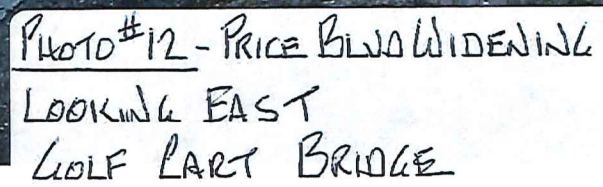 PHOTO #12 - PRICE BLVD WIDENING
LOOKING EAST
GOLF CART BRIDGE